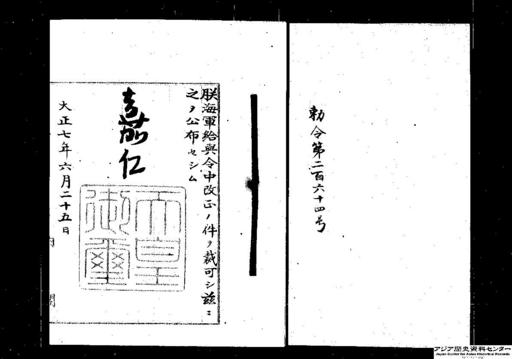 勅令第二百六十四号
朕海軍給與令中改正ノ件ヲ裁可シ茲ニ
之ヲ公布セシム
嘉仁
天皇
御璽
大正七年六月二十五日
アジア歴史資料センター
Japan Center for Asian Historical Records